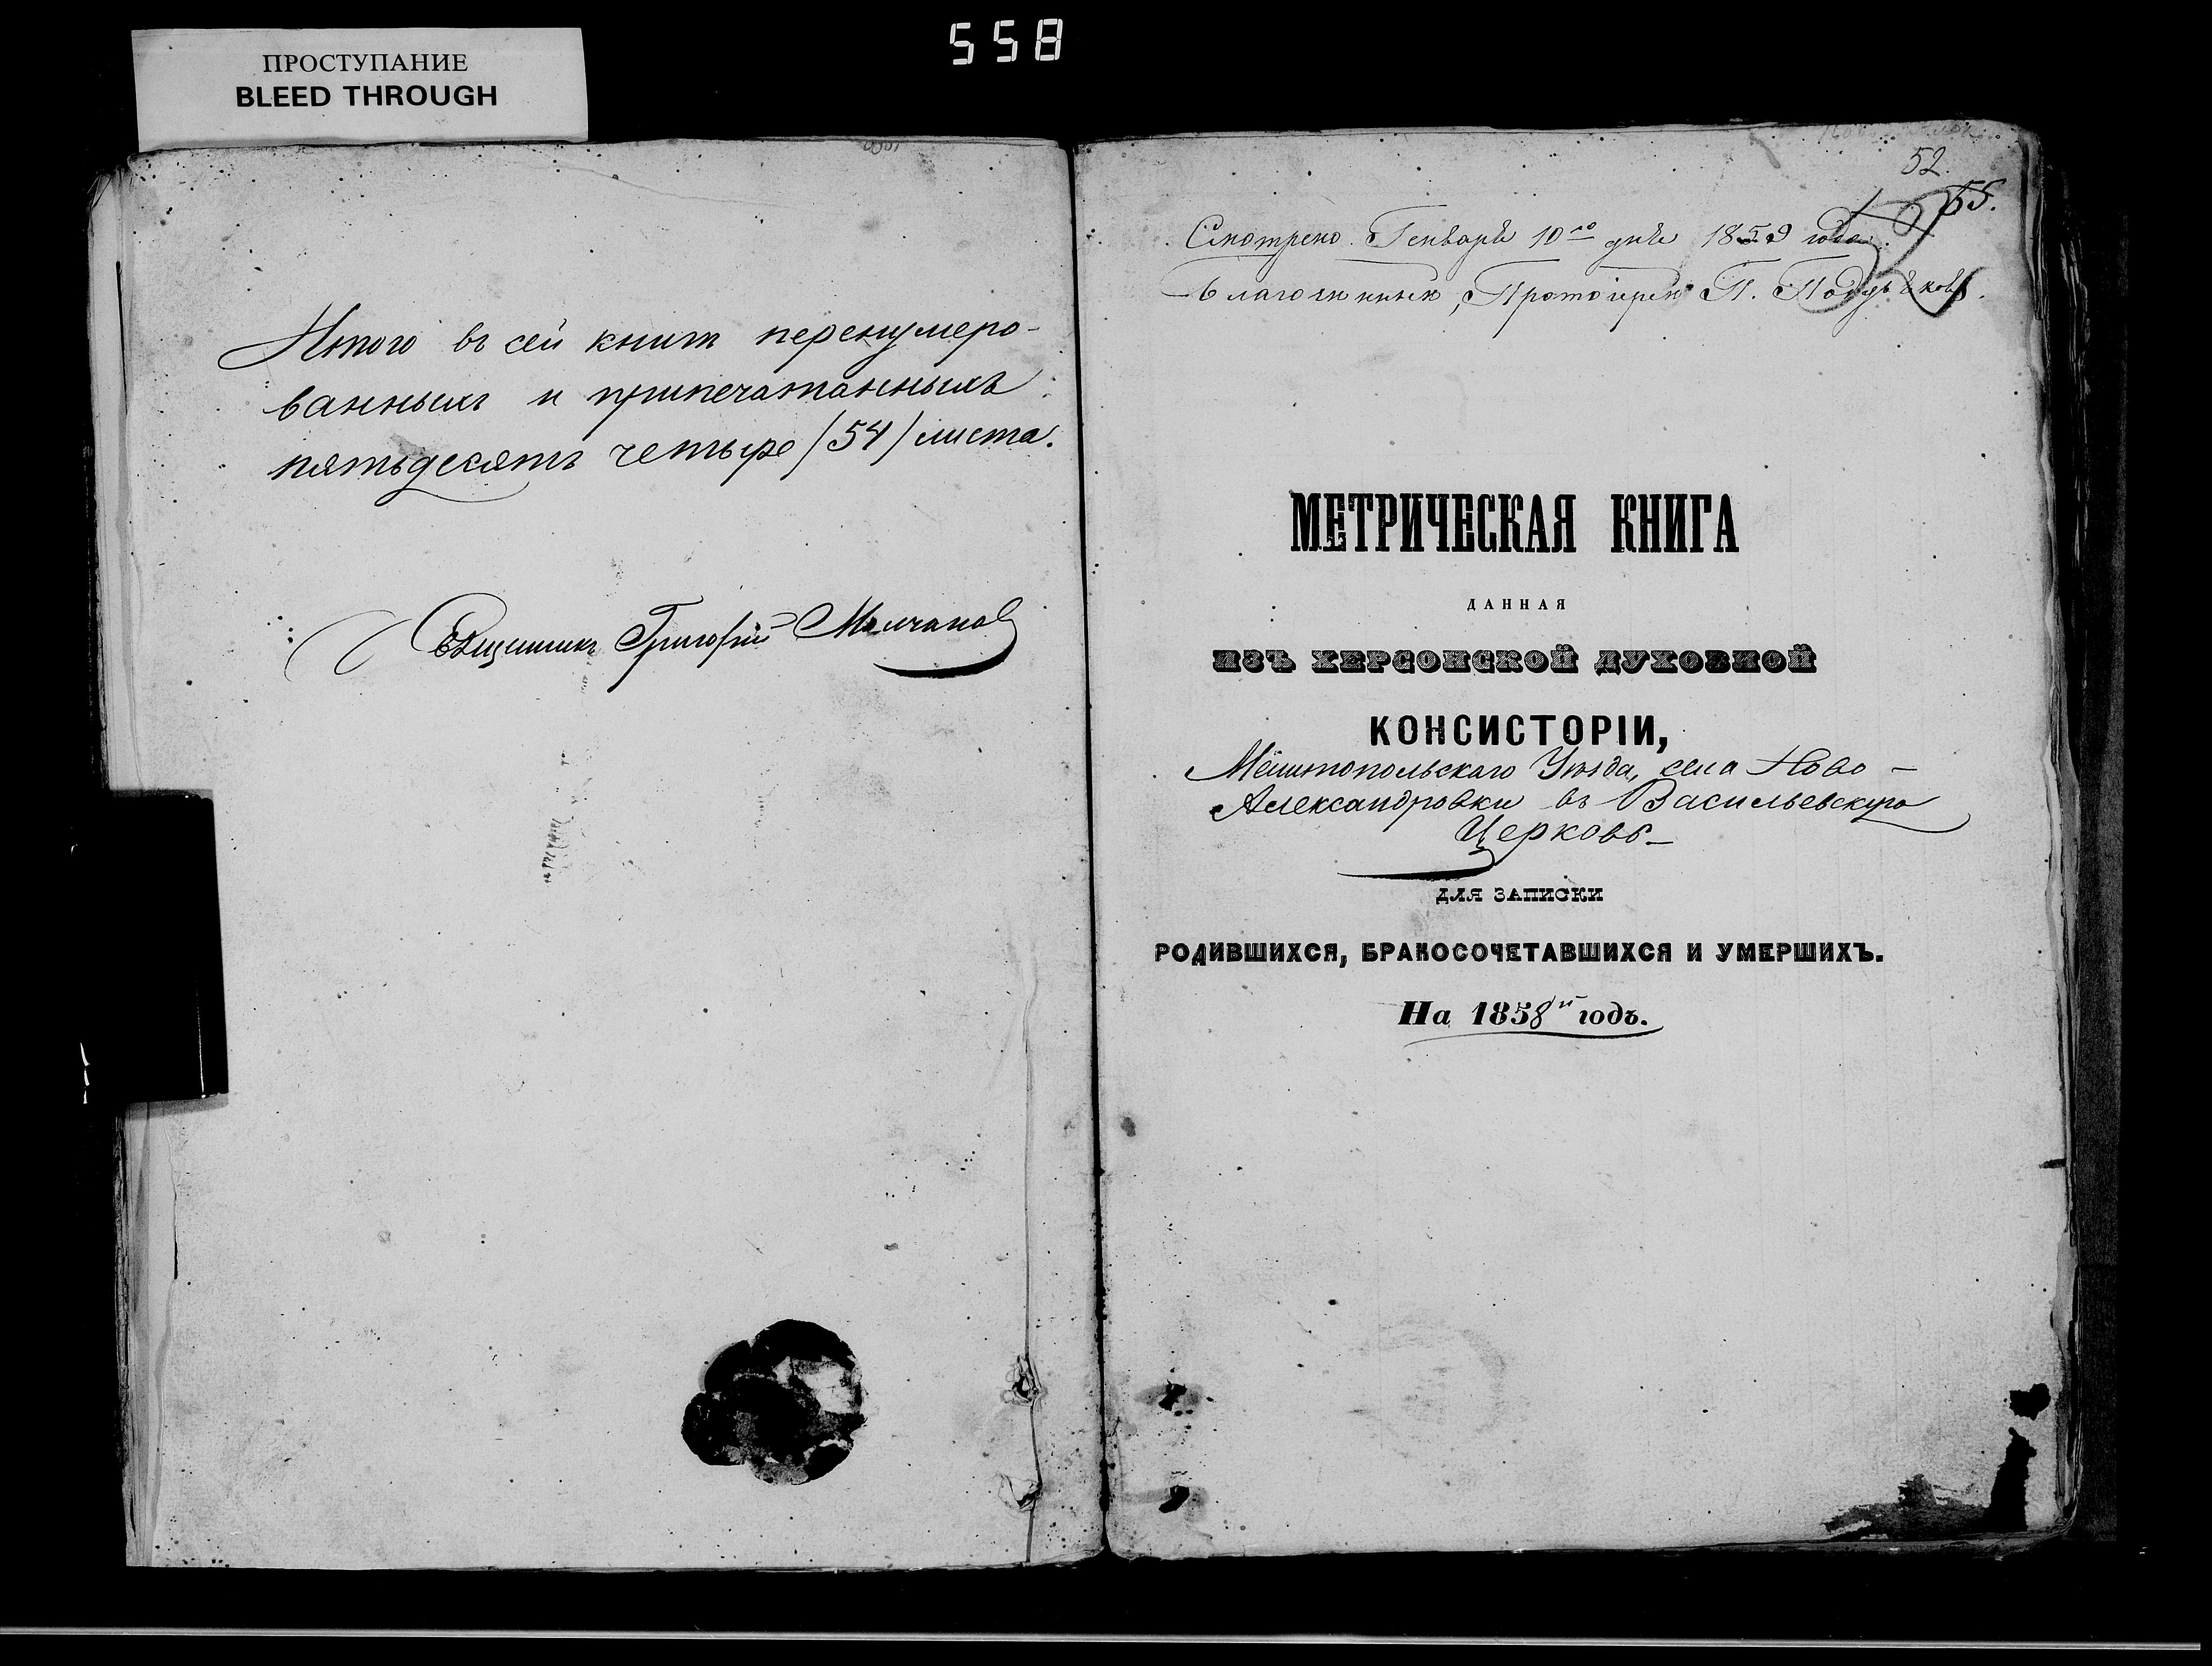 558
ПРОСТУПАНИЕ
BLEED THROUGH
Итого въ сей книгѣ перенумеро-
ванныхъ и припечатанныхъ
пятьдесятъ четыре /54/ листа.
Священникъ Григорій Молчанов
52.
55.
Смотрено. Генваря 10го дня 1859 года.
Благочинный, Протоіерей П.
МЕТРИЧЕСКАЯ КНИГА
ДАННАЯ
ИЗЪ ХЕРСОНСКОЙ ДУХОВНОЙ
КОНСИСТОРІИ,
Мелитопольскаго Уѣзда, села Ново-
Александровки въ Васильевскую
Церковь-
ДЛЯ ЗАПИСКИ
РОДИВШИХСЯ, БРАКОСОЧЕТАВШИХСЯ И УМЕРШИХЪ.
На 1858й годъ.